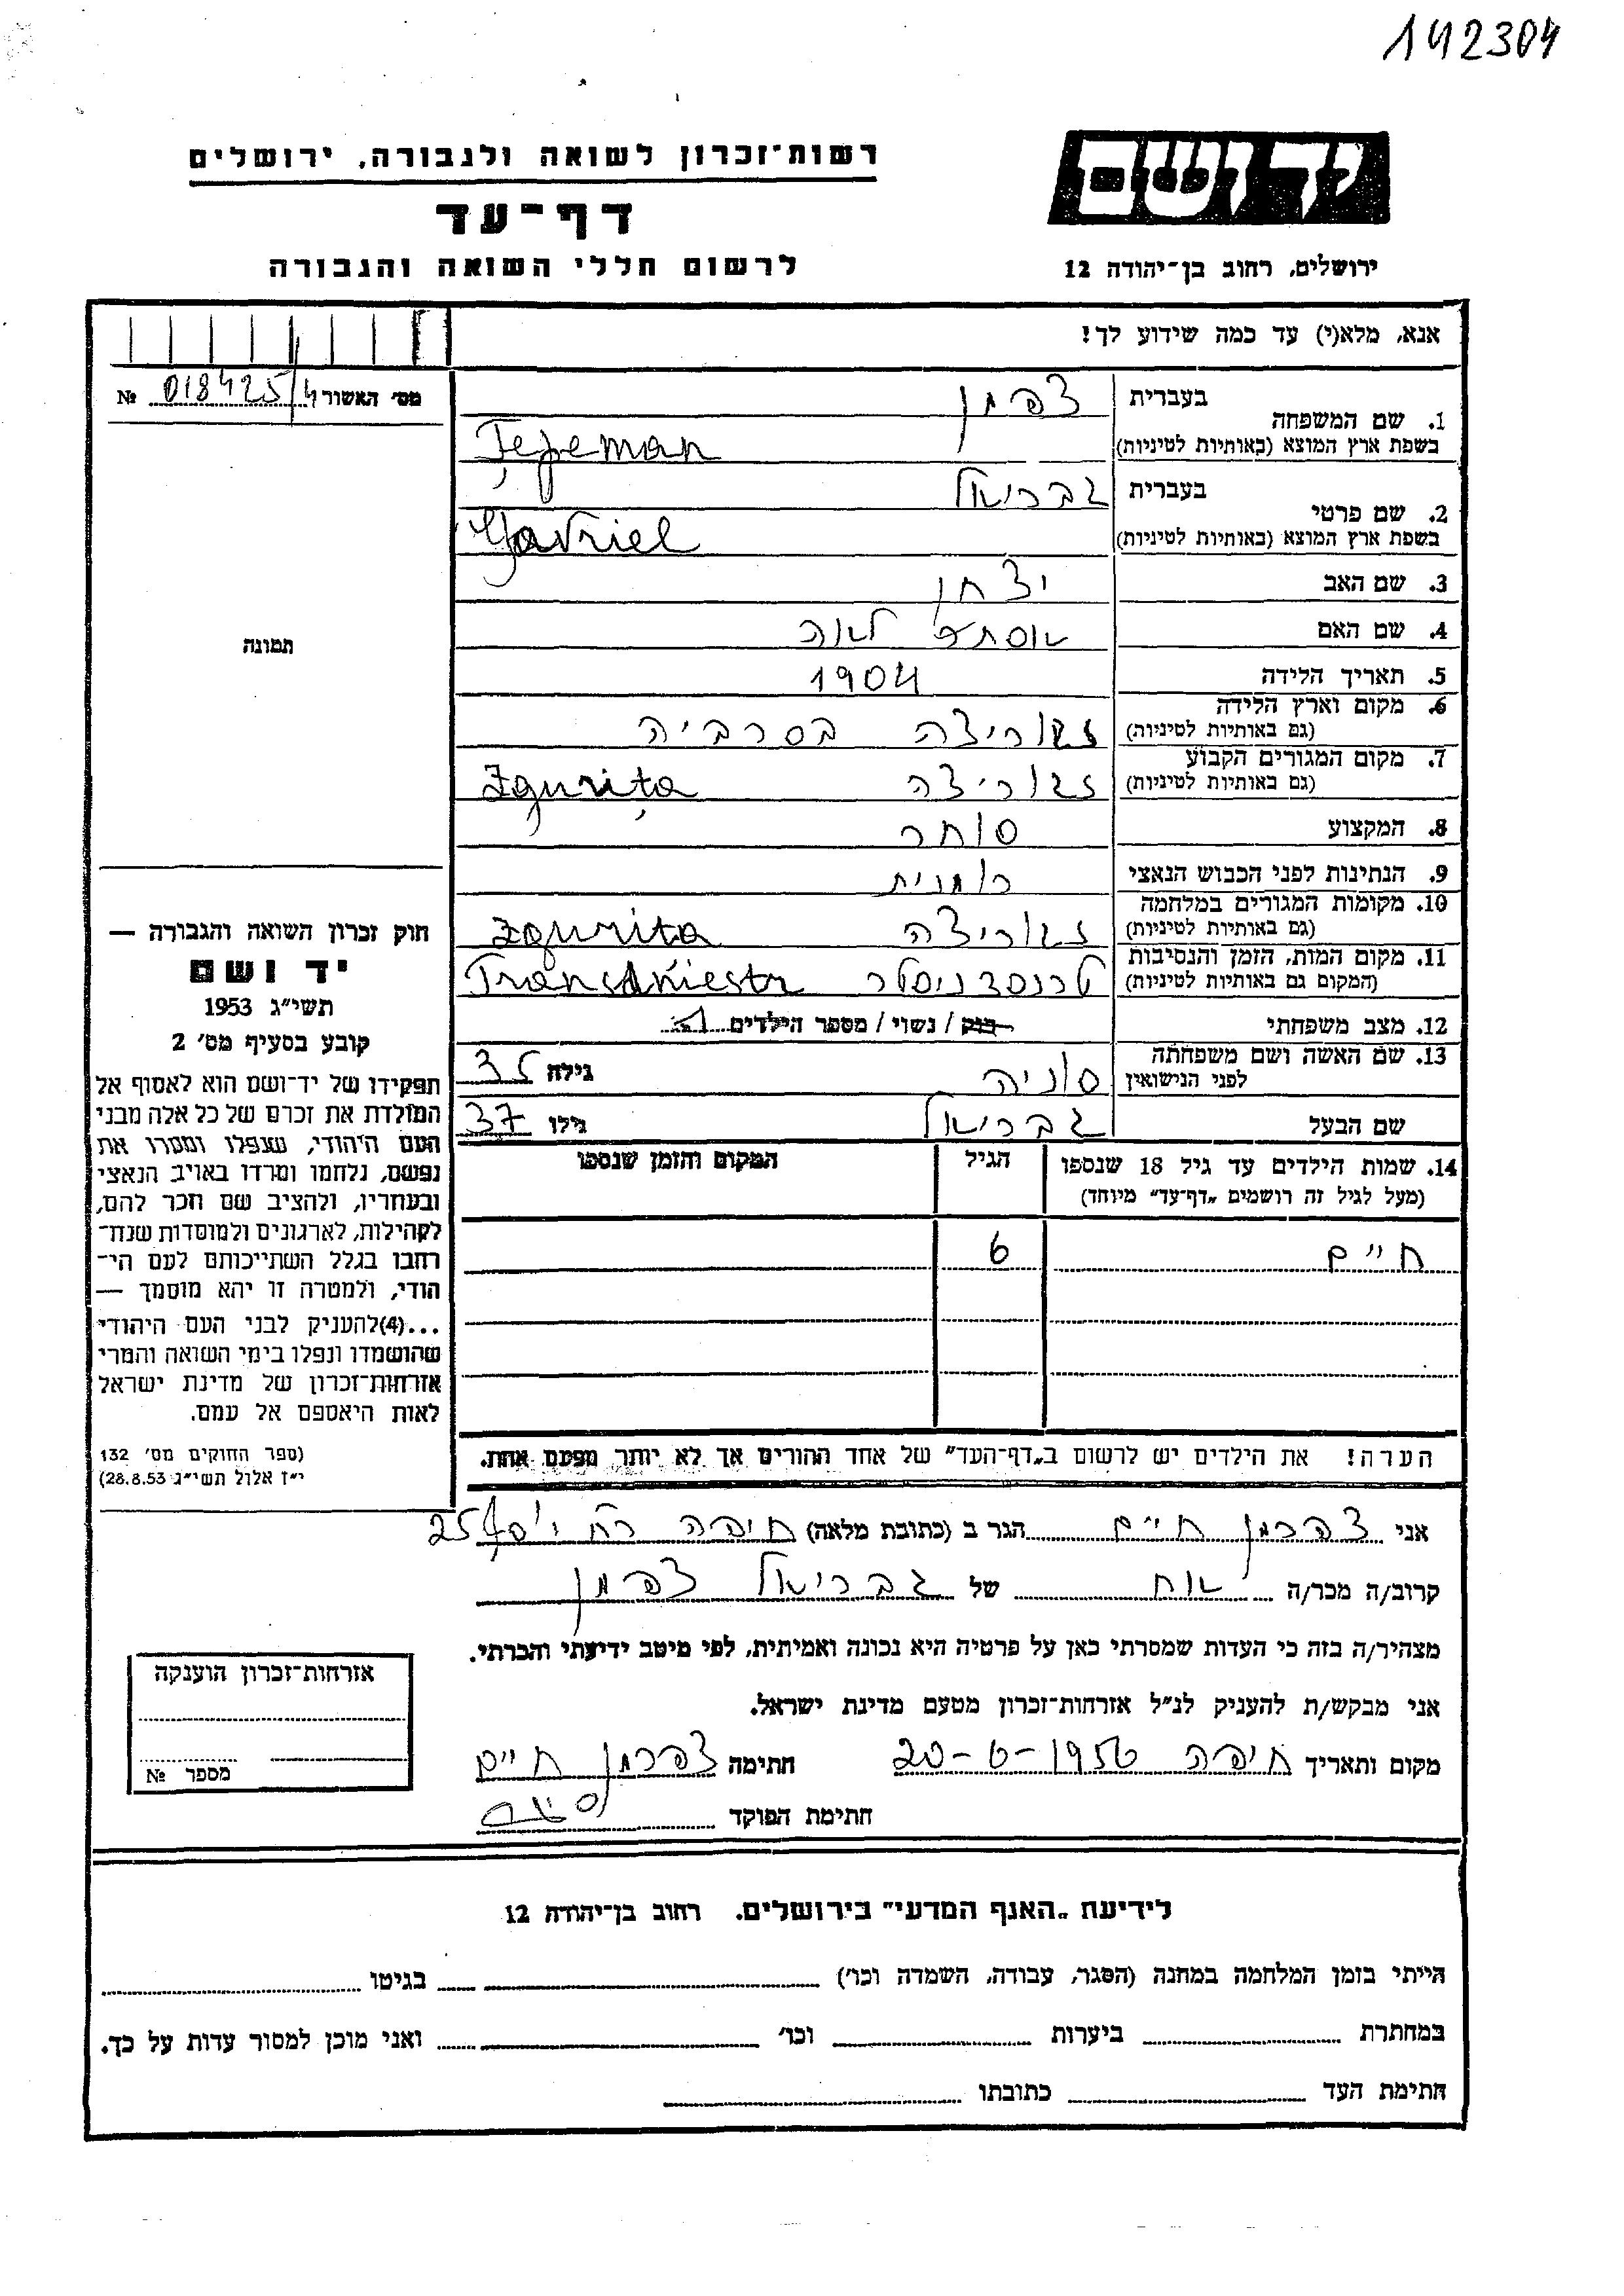 142304
יד ושם
ירושלים, רחוב בן־יהודה 12
רשות־זכרון לשואה ולגבורה, ירושלים
דף־עד
לרשום חללי השואה והגבורה
אנא, מלא(י) עד כמה שידוע לך!
מס׳ האשור 018425/4 №
1. שם המשפחה בעברית צפמן
בשפת ארץ המוצא (באותיות לטיניות) Țepeman
2. שם פרטי בעברית גבריאל
בשפת ארץ המוצא (באותיות לטיניות) Gavriel
3. שם האב יצחק
4. שם האם אסתר לאה
5. תאריך הלידה 1904
6. מקום וארץ הלידה זגוריצה בסרביה
(גם באותיות לטיניות)
7. מקום המגורים הקבוע זגוריצה Zgurița
(גם באותיות לטיניות)
8. המקצוע סוחר
9. הנתינות לפני הכבוש הנאצי רומנית
10. מקומות המגורים במלחמה זגוריצה Zgurita
(גם באותיות לטיניות)
11. מקום המות, הזמן והנסיבות טרנסדניסטר Transdniestr
(המקום גם באותיות לטיניות)
12. מצב משפחתי רוק / נשוי / מספר הילדים 1
13. שם האשה ושם משפחתה סוניה גילה 35
לפני הנישואין
שם הבעל גבריאל גילו 37
14. שמות הילדים עד גיל 18 שנספו הגיל המקום והזמן שנספו
(מעל לגיל זה רושמים „דף־עד״ מיוחד)
חיים 6
הערה! את הילדים יש לרשום ב„דף־העד״ של אחד ההורים אך לא יותר מפעם אחת.
תמונה
חוק זכרון השואה והגבורה —
יד ושם
תשי״ג 1953
קובע בסעיף מס׳ 2
תפקידו של יד־ושם הוא לאסוף אל
המולדת את זכרם של כל אלה מבני
העם היהודי, שנפלו ומסרו את
נפשם, נלחמו ומרדו באויב הנאצי
ובעוזריו, ולהציב שם וזכר להם,
לקהילות, לארגונים ולמוסדות שנח־
רבו בגלל השתייכותם לעם הי־
הודי, ולמטרה זו יהא מוסמך —
...(4)להעניק לבני העם היהודי
שהושמדו ונפלו בימי השואה והמרי
אזרחות־זכרון של מדינת ישראל
לאות היאספם אל עמם.
(ספר החוקים מס׳ 132
י״ז אלול תשי״ג 28.8.53)
אני צפרמן חיים הגר ב (כתובת מלאה) חיפה רח
קרוב/ה מכר/ה אח של גבריאל צפמן
מצהיר/ה בזה כי העדות שמסרתי כאן על פרטיה היא נכונה ואמיתית, לפי מיטב ידיעתי והכרתי.
אני מבקש/ת להעניק לנ״ל אזרחות־זכרון מטעם מדינת ישראל.
מקום ותאריך חיפה 20-6-1956 חתימה צפרמן חיים
חתימת הפוקד
אזרחות־זכרון הוענקה
מספר №
לידיעת „האגף המדעי״ בירושלים. רחוב בן־יהודה 12
הייתי בזמן המלחמה במחנה (הסגר, עבודה, השמדה וכו׳) בגיטו
במחתרת ביערות וכו׳ ואני מוכן למסור עדות על כך.
חתימת העד כתובתו